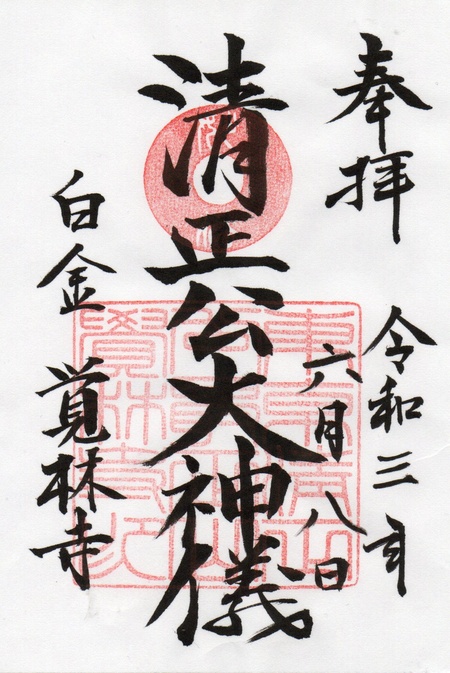 奉拝
令和三年
六月八日
清正公大神儀
白金 覚林寺